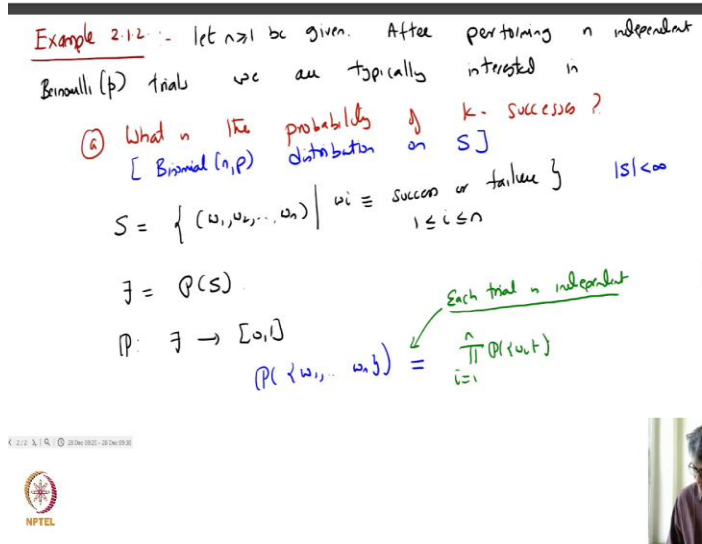 Example 2.1.2 :- let n≥1 be given. After performing n independent
Bernoulli (p) trials we are typically interested in
(a) What is the probability of k- successes ?
[ Binomial (n,p) distribution on S ]
S = { (ω₁,ω₂,..,ωₙ) | ωi ≡ success or failure } |S|<∞
1≤i≤n
Ƒ = P(S)
Each trial is independent
ℙ: Ƒ → [0,1]
ℙ( {ω₁,.. ωₙ}) = ∏ᵢ₌₁ⁿ ℙ({ωᵢ})
2/2 28 Dec 09:25 - 28 Dec 09:30
NPTEL